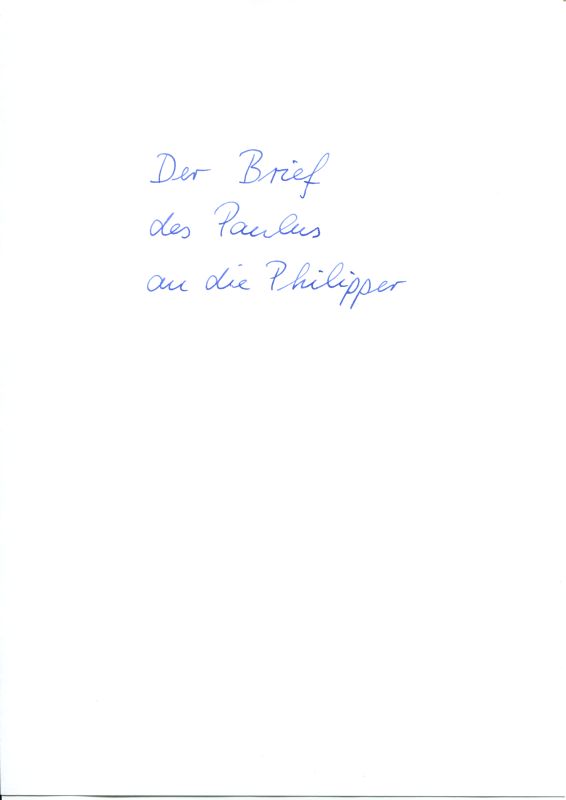 Der Brief
des Paulus
an die Philipper